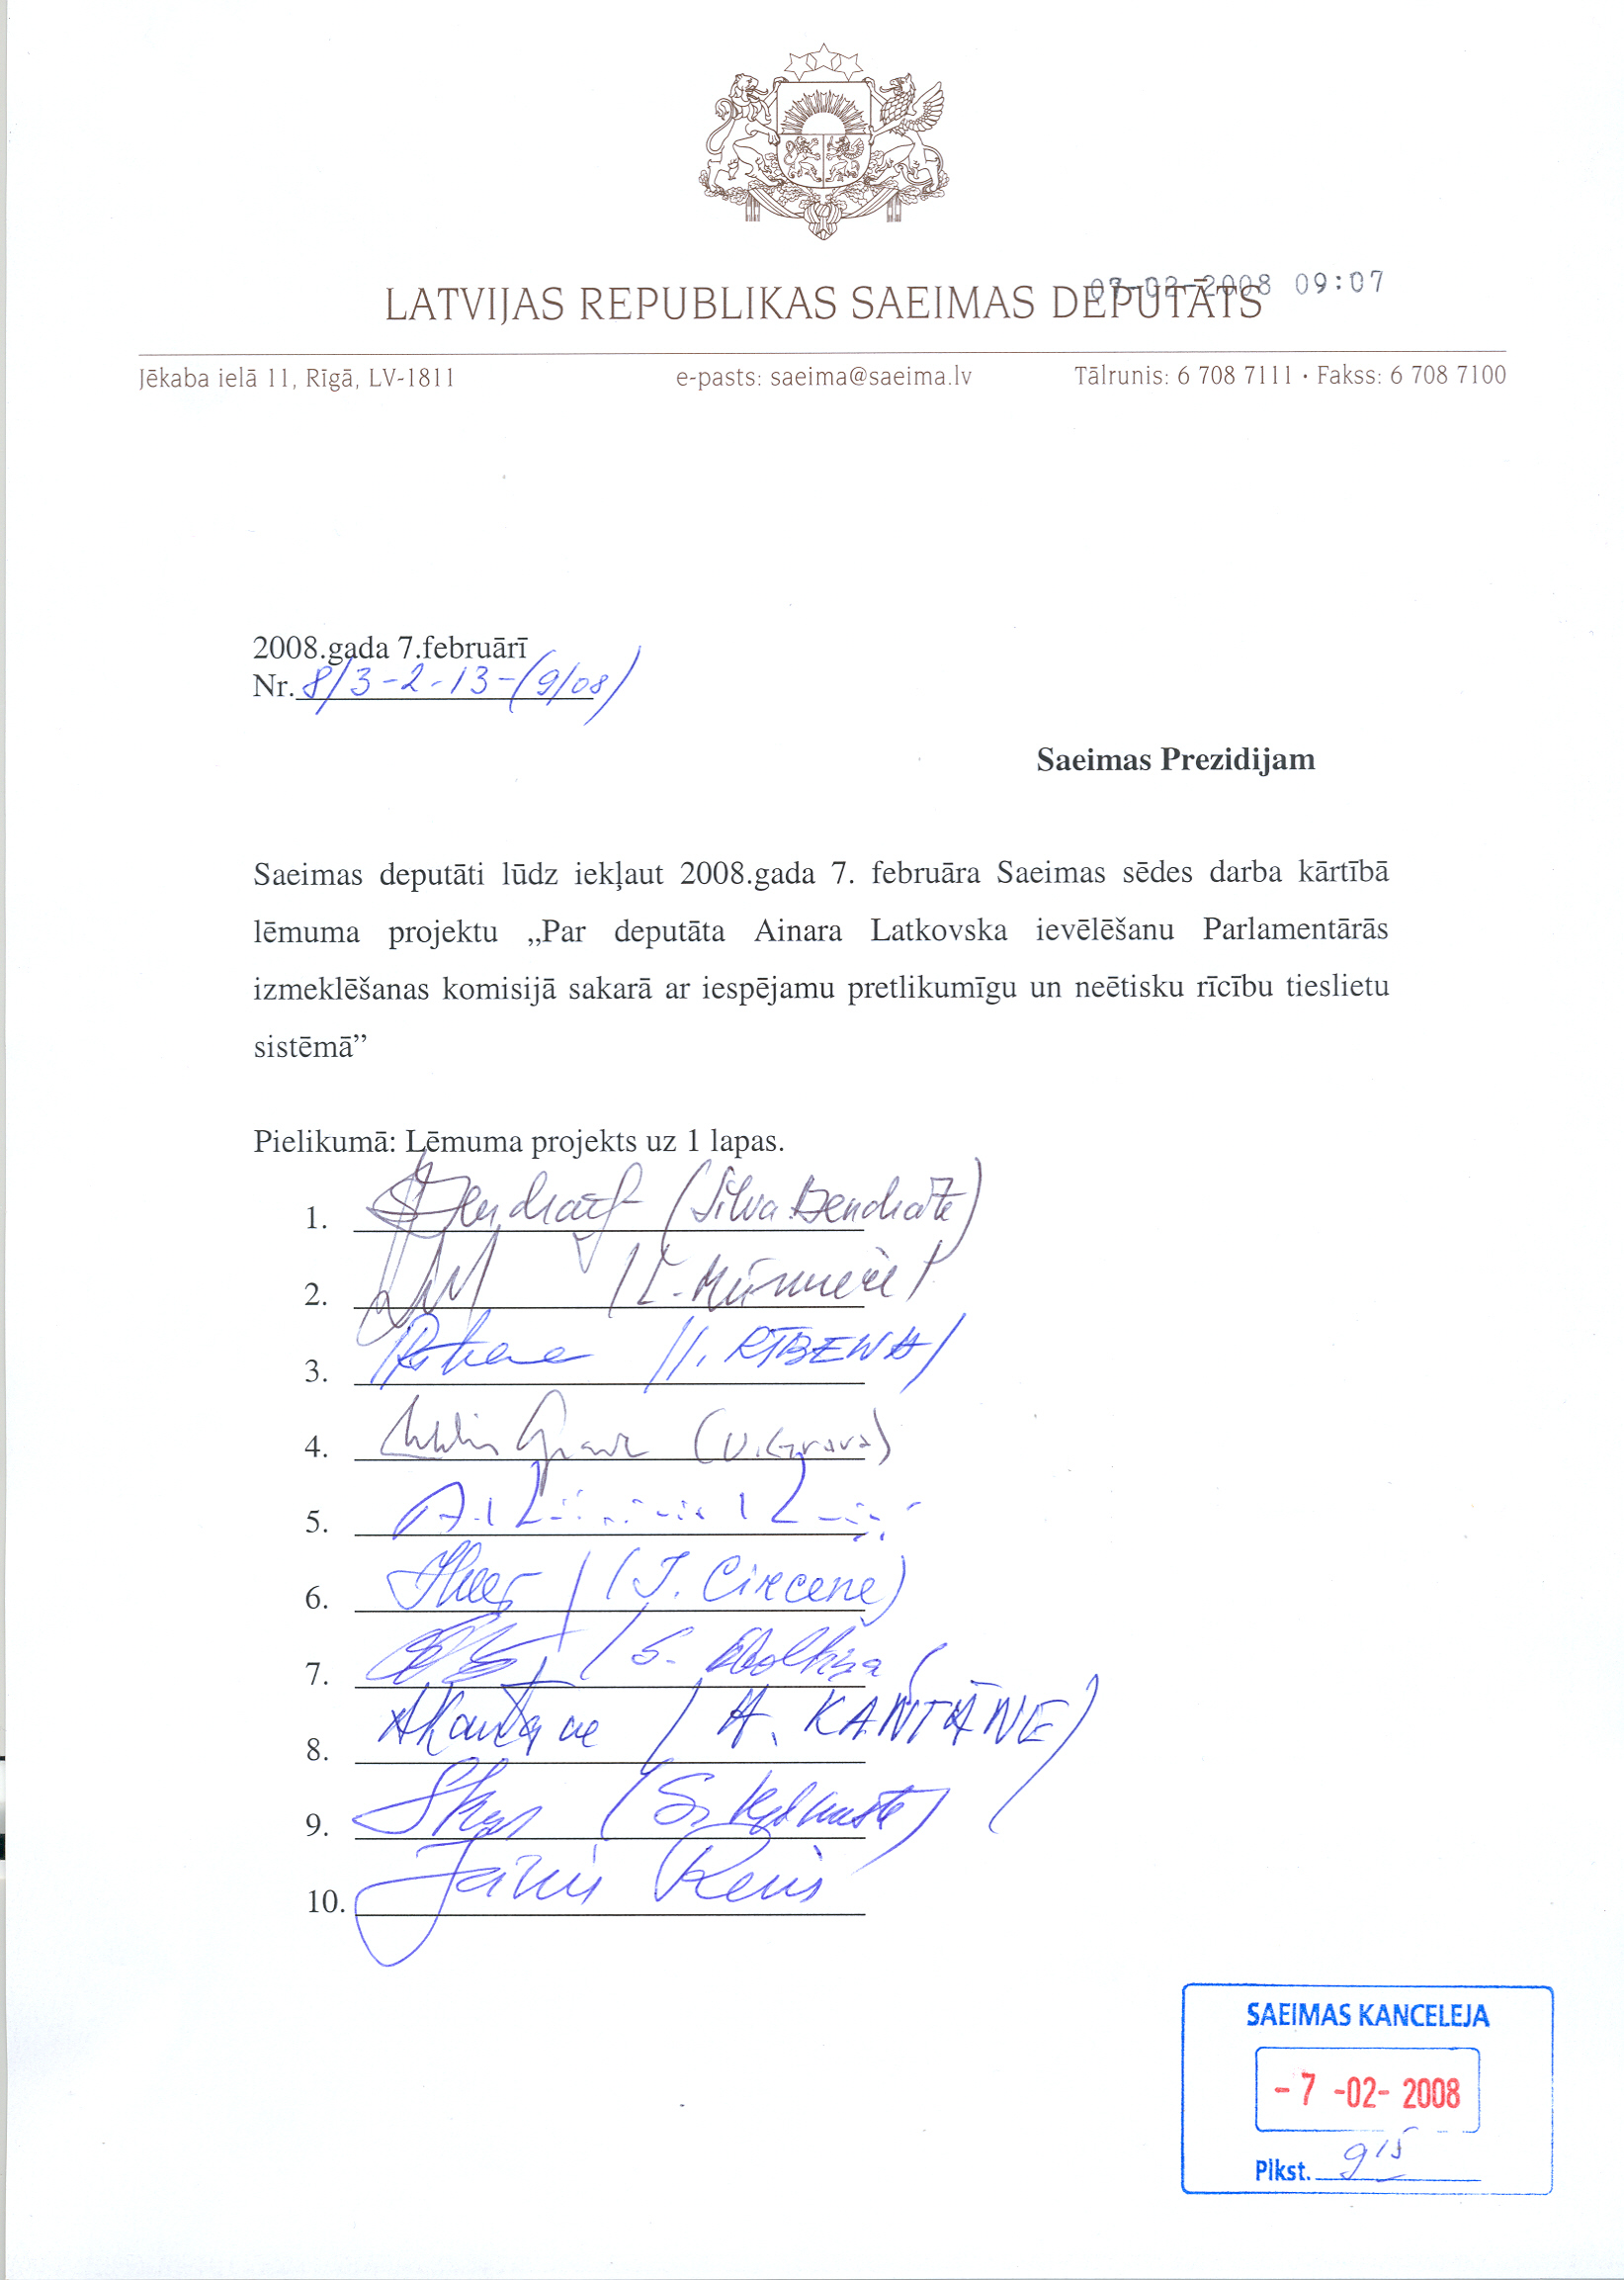 07-02-2008 09:07
LATVIJAS REPUBLIKAS SAEIMAS DEPUTĀTS
Jēkaba ielā 11, Rīgā, LV-1811 e-pasts: saeima@saeima.lv Tālrunis: 6 708 7111 • Fakss: 6 708 7100
2008.gada 7.februārī
Nr. 8/3-2-13-(9/08)
Saeimas Prezidijam
Saeimas deputāti lūdz iekļaut 2008.gada 7. februāra Saeimas sēdes darba kārtībā
lēmuma projektu „Par deputāta Ainara Latkovska ievēlēšanu Parlamentārās
izmeklēšanas komisijā sakarā ar iespējamu pretlikumīgu un neētisku rīcību tieslietu
sistēmā”
Pielikumā: Lēmuma projekts uz 1 lapas.
1. (Silva Bendrāte)
2. /L. Mūrniece/
3. /I. RĪBENA/
4. (U.Grava)
5.
6. (I. Circene)
7. /S. Āboltiņa/
8. / A. KANTĀNE/
9. (S. Ķikuste)
10. Jānis Reirs
SAEIMAS KANCELEJA
- 7 -02- 2008
Plkst. 9 15